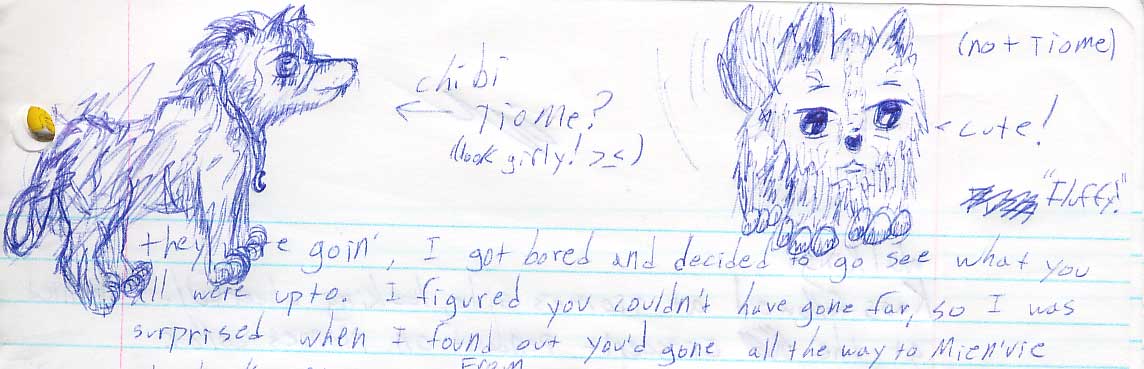 (not Tiome)
chibi
Tiome?
(look girly! >_<)
cute!
"Fluffy!"
they goin', I got bored and decided to go see what you
all were upto. I figured you couldn't have gone far, so I was
surprised when I found out you'd gone all the way to Mien'vie
From